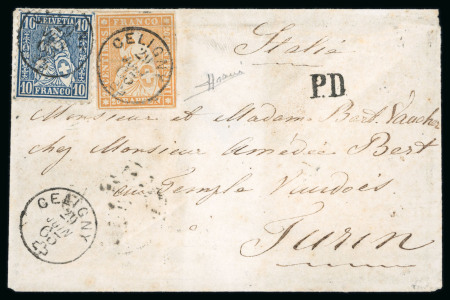 10 HELVETIA 10
10 FRANCO 10
FRANCO
CELIGNY
29
Italie
P.D.
Monsieur et Madam Bert. Vaucher
chez Monsieur Amédée Bert
au Temple Vaudois
Turin
CELIGNY
29
JUIN
65